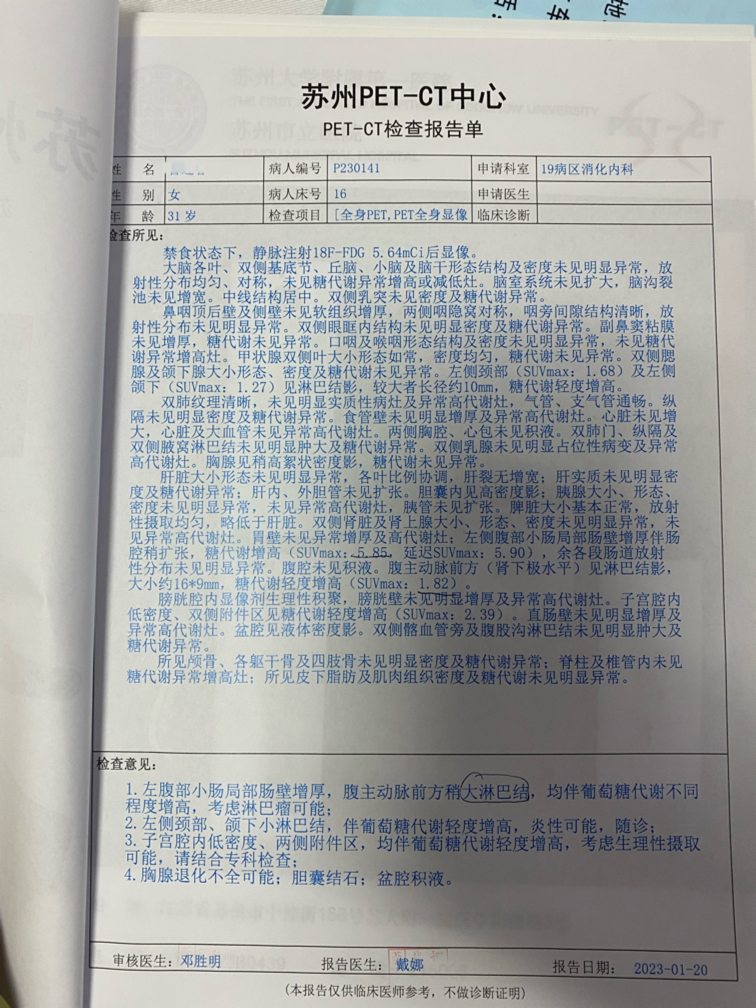 苏州PET-CT中心
PET-CT检查报告单
姓 名 病人编号 P230141 申请科室 19病区消化内科
性 别 女 病人床号 16 申请医生
年 龄 31 岁 检查项目 [全身PET,PET全身显像 临床诊断
检查所见:
禁食状态下，静脉注射18F-FDG 5.64mCi后显像。
大脑各叶、双侧基底节、丘脑、小脑及脑干形态结构及密度未见明显异常，放
射性分布均匀、对称，未见糖代谢异常增高或减低灶。脑室系统未见扩大，脑沟裂
池未见增宽。中线结构居中。双侧乳突未见密度及糖代谢异常。
鼻咽顶后壁及侧壁未见软组织增厚，两侧咽隐窝对称，咽旁间隙结构清晰，放
射性分布未见明显异常。双侧眼眶内结构未见明显密度及糖代谢异常。副鼻窦粘膜
未见增厚，糖代谢未见异常。口咽及喉咽形态结构及密度未见明显异常，未见糖代
谢异常增高灶。甲状腺双侧叶大小形态如常，密度均匀，糖代谢未见异常。双侧腮
腺及颌下腺大小形态、密度及糖代谢未见异常。左侧颈部（SUVmax: 1.68）及左侧
颌下（SUVmax: 1.27）见淋巴结影，较大者长径约10mm，糖代谢轻度增高。
双肺纹理清晰，未见明显实质性病灶及异常高代谢灶，气管、支气管通畅。纵
隔未见明显密度及糖代谢异常。食管壁未见明显增厚及异常高代谢灶。心脏未见增
大，心脏及大血管未见异常高代谢灶。两侧胸腔、心包未见积液。双肺门、纵隔及
双侧腋窝淋巴结未见明显肿大及糖代谢异常。双侧乳腺未见明显占位性病变及异常
高代谢灶。胸腺见稍高絮状密度影，糖代谢未见异常。
肝脏大小形态未见明显异常，各叶比例协调，肝裂无增宽；肝实质未见明显密
度及糖代谢异常；肝内、外胆管未见扩张。胆囊内见高密度影；胰腺大小、形态、
密度未见明显异常，未见异常高代谢灶，胰管未见扩张。脾脏大小基本正常，放射
性摄取均匀，略低于肝脏。双侧肾脏及肾上腺大小、形态、密度未见明显异常，未
见异常高代谢灶。胃壁未见异常增厚及高代谢灶；左侧腹部小肠局部肠壁增厚伴肠
腔稍扩张，糖代谢增高（SUVmax: 5.85, 延迟SUVmax: 5.90），余各段肠道放射
性分布未见明显异常。腹腔未见积液。腹主动脉前方（肾下极水平）见淋巴结影，
大小约16*9mm，糖代谢轻度增高（SUVmax: 1.82）。
膀胱腔内显像剂生理性积聚，膀胱壁未见明显增厚及异常高代谢灶。子宫腔内
低密度、双侧附件区见糖代谢轻度增高（SUVmax: 2.39）。直肠壁未见明显增厚及
异常高代谢灶。盆腔见液体密度影。双侧髂血管旁及腹股沟淋巴结未见明显肿大及
糖代谢异常。
所见颅骨、各躯干骨及四肢骨未见明显密度及糖代谢异常；脊柱及椎管内未见
糖代谢异常增高灶；所见皮下脂肪及肌肉组织密度及糖代谢未见明显异常。
检查意见:
1.左腹部小肠局部肠壁增厚，腹主动脉前方稍大淋巴结，均伴葡萄糖代谢不同
程度增高，考虑淋巴瘤可能；
2.左侧颈部、颌下小淋巴结，伴葡萄糖代谢轻度增高，炎性可能，随诊；
3.子宫腔内低密度、两侧附件区，均伴葡萄糖代谢轻度增高，考虑生理性摄取
可能，请结合专科检查；
4.胸腺退化不全可能；胆囊结石；盆腔积液。
审核医生: 邓胜明 报告医生: 戴娜 报告日期: 2023-01-20
(本报告仅供临床医师参考，不做诊断证明)